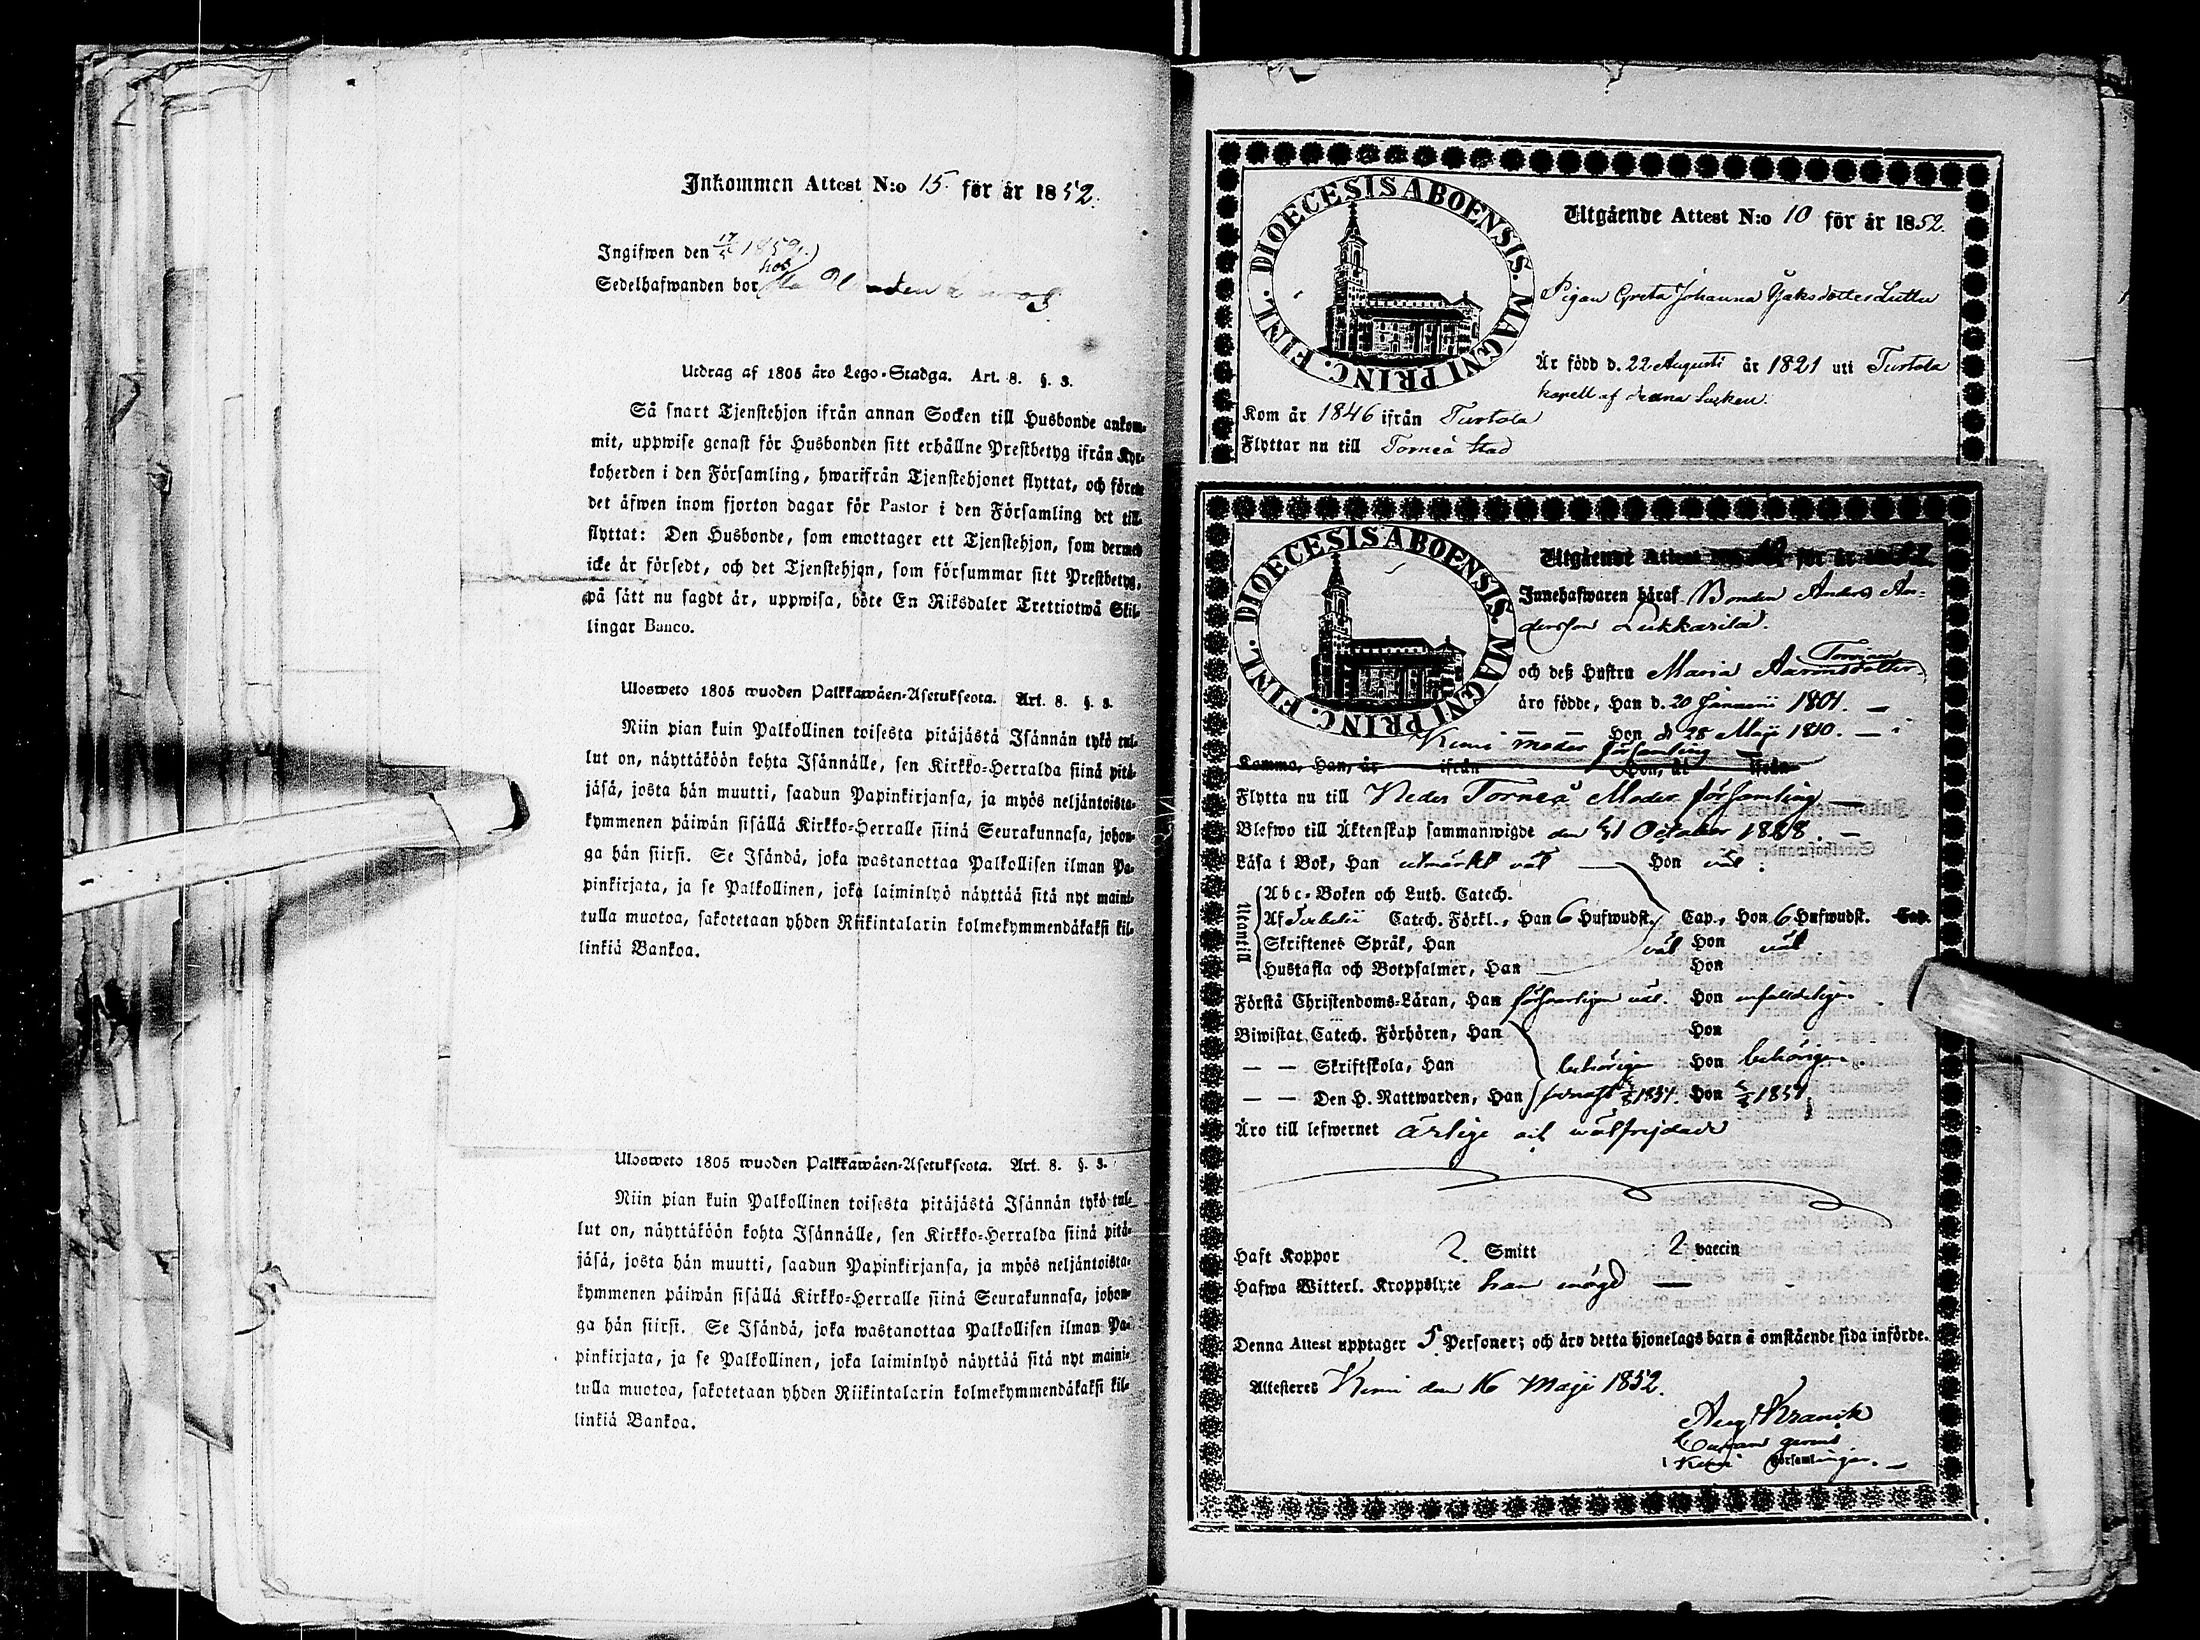 Inkommen Attest N:o 15 för år 1852.
Ingifwen den 17/5 1852.
Sedelhafwanden bor hos
Utdrag af 1805 års Lego-Stadga. Art. 8. §. 3.
Så snart Tjenstehjon ifrån annan Socken till Husbonde ankom-
mit, uppwise genast för Husbonden sitt erhållne Prestbetyg ifrån Kyr-
koherden i den Församling, hwarifrån Tjenstehjonet flyttat, och förete
det äfwen inom fjorton dagar för Pastor i den Församling det till-
flyttat: Den Husbonde, som emottager ett Tjenstehjon, som dermed
icke är försedt, och det Tjenstehjon, som försummar sitt Prestbetyg,
på sätt nu sagdt är, uppwisa, böte En Riksdaler Trettiotwå Skil-
lingar Banco.
Ulosweto 1805 wuoden Palkkawäen-Asetuksesta. Art. 8. §. 3.
Niin pian kuin Palkollinen toisesta pitäjästä Isännän tykö tul-
lut on, näyttäköön kohta Isännälle, sen Kirkko-Herralda siinä pitä-
jäsä, josta hän muutti, saadun Papinkirjansa, ja myös neljäntoista-
kymmenen päiwän sisällä Kirkko-Herralle siinä Seurakunnasa, johon-
ga hän siirsi. Se Isändä, joka wastanottaa Palkollisen ilman Pa-
pinkirjata, ja se Palkollinen, joka laiminlyö näyttää sitä nyt maini-
tulla muotoa, sakotetaan yhden Riikintalarin kolmekymmendäkaksi kil-
linkiä Bankoa.
Ulosweto 1805 wuoden Palkkawäen-Asetuksesta. Art. 8. §. 3.
Niin pian kuin Palkollinen toisesta pitäjästä Isännän tykö tul-
lut on, näyttäköön kohta Isännälle, sen Kirkko-Herralda siinä pitä-
jäsä, josta hän muutti, saadun Papinkirjansa, ja myös neljäntoista-
kymmenen päiwän sisällä Kirkko-Herralle siinä Seurakunnasa, johon-
ga hän siirsi. Se Isändä, joka wastanottaa Palkollisen ilman Pa-
pinkirjata, ja se Palkollinen, joka laiminlyö näyttää sitä nyt maini-
tulla muotoa, sakotetaan yhden Riikintalarin kolmekymmendäkaksi kil-
linkiä Bankoa.
DIOECESIS ABOENSIS. MAGNI PRINC. FINL.
Utgående Attest N:o 10 för år 1852.
Pigan Greta Johanna Jaksdotter Lutter
Är född d. 22 Augusti år 1821 uti Turtola
kapell af denna Socken.
Kom år 1846 ifrån Turtola
Flyttar nu till Torneå Stad
DIOECESIS ABOENSIS. MAGNI PRINC. FINL.
Utgående Attest för år
Innehafwaren häraf Bonden Anders An-
dersson Lukkarila.
och deß Hustru Maria
äro födde, Han d. 20 Januarii 1801.
Hon d 28 Maji 1810.
Kemi moder församling
Komne, Han, år ifrån Hon, år ifrån
Flytta nu till Neder Torneå Moder församling
Blefwo till Äktenskap sammanwigde den October
Läsa i Bok, Han utmärkt väl Hon väl.
Utantill
Abc-Boken och Luth. Catech.
Af Catech. Förkl., Han 6 Hufwudst. Cap., Hon 6 Hufwudst. Cap.
Skriftenes Språk, Han väl Hon väl
Hustafla och Botpsalmer, Han Hon
Förstå Christendoms-Läran, Han försvarligen väl. Hon enfaldeligen
Biwistat Catech. Förhören, Han Hon
— — Skriftskola, Han behörigen Hon behörigen.
— — Den H. Nattwarden, Han senast Hon
Äro till lefwernet ärlige och wälfrejdade
Haft Koppor 2 Smitt 2 vaccin
Hafwa Witterl. Kroppslyte
Denna Attest upptager 5 Personer; och äro detta hjonelags barn å omstående sida införde.
Attesteres Kemi den 16 Maji 1852.
Aug. Kranck
i Kemi Församlingen.